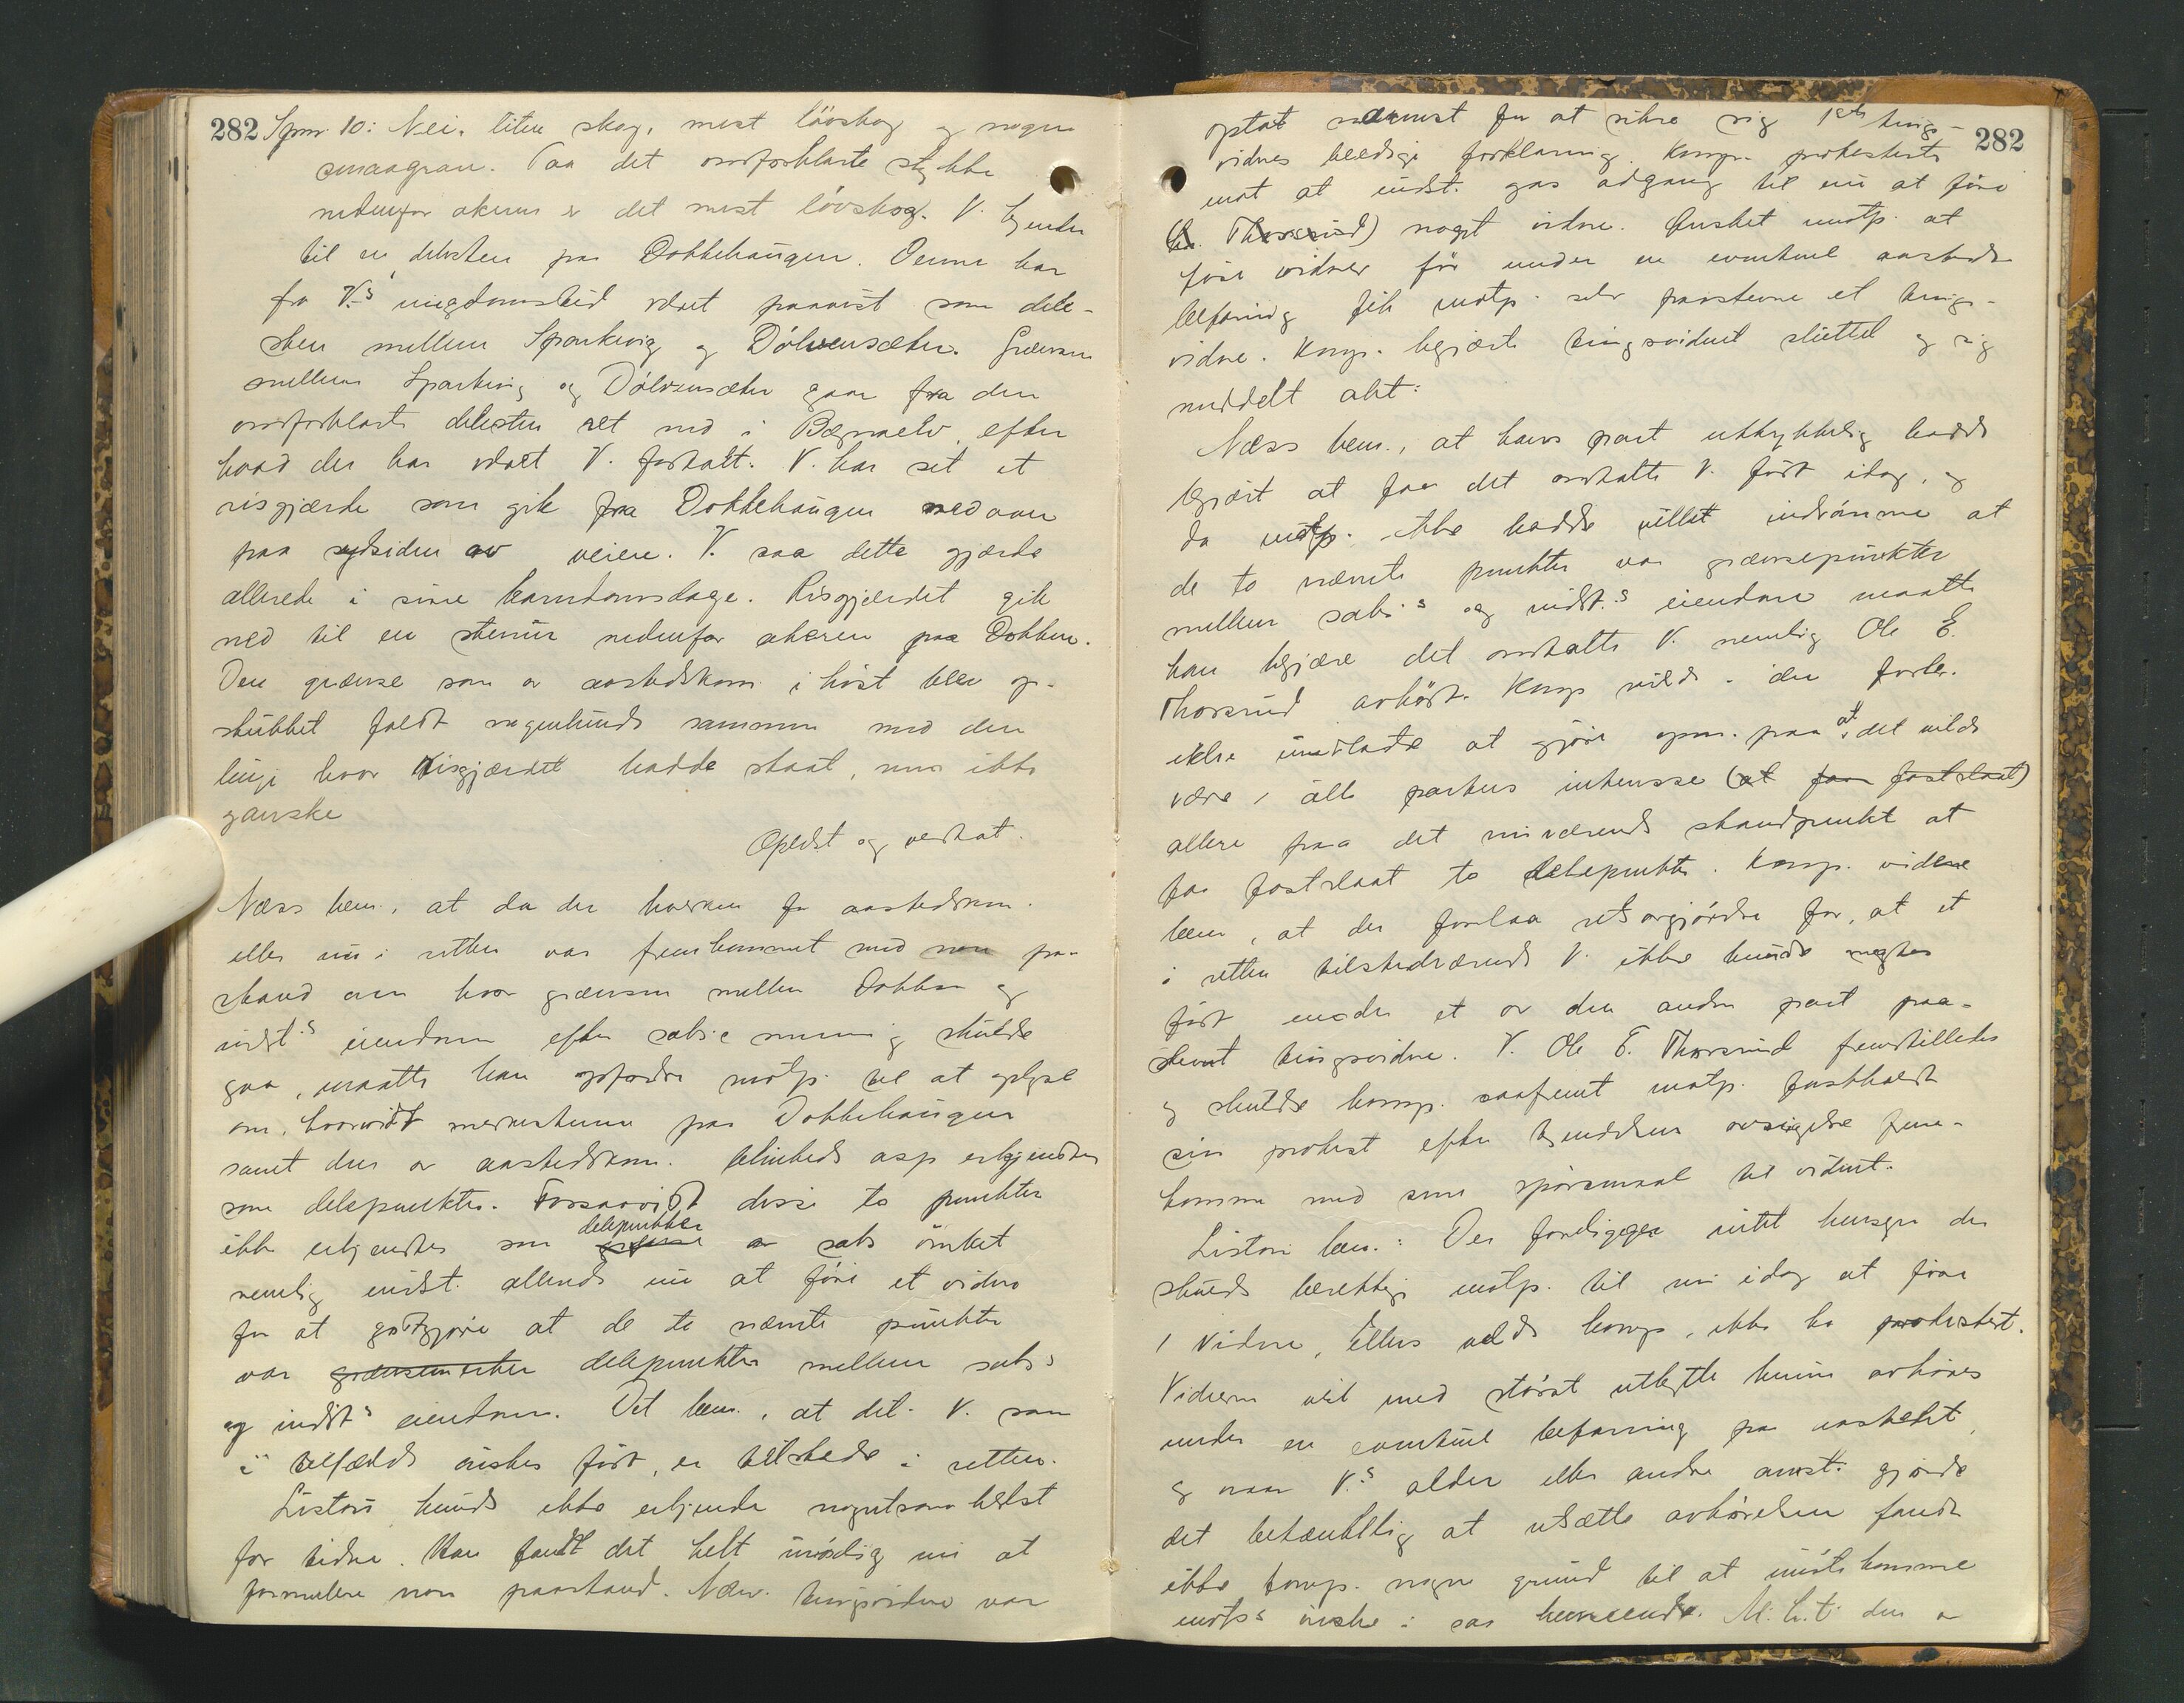 282 Spm. 10: Nei. liten skog, mest lövskog og nogen
smaagran. Paa det omforklarte stykke
nedenfor akeren er det mest lövskog. V. kjender
til en delesten paa Dokkehaugen. Denne har
fra V.s ungdomstid været paavist som dele-
sten mellem Sparkevig og Dölvensæter. Grænsen
mellem Sparkevig og Dölvensæter gaar fra den
omforklarte delesten ret ned i Bægnaelv, efter
hvad der har været V. fortalt. V. har set et
risgjærde som gik fra Dokkehaugen nedover
paa sydsiden av veien. V. saa dette gjærde
allerede i sine barndomsdage. Risgjærdet gik
ned til en stenur nedenfor akeren paa Dokken.
Den grænse som av aastedskom. i höst blev op-
stukket faldt nogenlunde sammen med den
linje hvor risgjærdet hadde staat, men ikke
ganske
Oplæst og vedtat.
Næss bem., at da der hverken for aastedskom.
eller nu i retten var fremkommet med noen paa-
stand om hvor grænsen mellem Dokken og
indst.s eiendom efter saks.s mening skulde
gaa, maatte han opfordre motp. til at oplyse
om, hvorvidt merkestenen paa Dokkehaugen
samt den av aastedskom. blinkede asp erkjendtes
som delepunkter. Forsaavidt disse to punkter
delepunkter
ikke erkjendtes som av saks. önsket
nemlig indst. allerede nu at före et vidne
for at godtgjöre at de to nævnte punkter
var grænsemerker delepunkter mellem saks.s
og indst.s eiendom. Det bem., at det V. som
i tilfælde önskes fört, er tilstede i retten.
Liston kunde ikke erkjende nogetsomhelst
for tiden. Han fandt det helt unödig nu at
formulere noen paastand. Næv. tingsvidne var
282
optat nærmest for at sikre sig 1 tings-
vidnes beedige forklaring. Komp. protesterte
mot at indst. gas adgang til nu at före
Thorsrud) noget vidne. Önsket motp. at
före vidner för under en eventuel aasteds-
befaring fik motp. selv paastevne et tings-
vidne. Komp. begjærte tingsvidnet sluttet og sig
meddelt akt:
Næss bem., at hans part uttrykkelig hadde
begjært at faa det omtalte V. fört idag, og
da motp. ikke hadde villet indrömme at
de to nævnte punkter var grænsepunkter
mellem saks.s og indst.s eiendom maatte
han begjære det omtalte V. nemlig Ole E.
Thorsrud avhört. Komp. vilde i den forb.
ikke undlate at gjöre opm. paa at det vilde
være i alle parters interesse (at faa fastslaat)
allere paa det nuværende standpunkt at
faa fastslaat to delepunkter. Komp. videre
bem., at der forelaa retsavgjörelse for, at et
i retten tilstedeværende V. ikke kunde negtes
fört under et av den anden part paa-
stevnt tingsvidne. V. Ole E. Thorsrud fremstilledes
og skulde komp. saafremt motp. fastholdt
sin protest efter kjendelsens avsigelse frem-
komme med sine spörsmaal til vidnet.
Liston bem.: Der foreligger intet hensyn der
skulde berettige motp. til nu idag at före
1 vidne, ellers vilde komp. ikke ha protestert.
Vidnerne vil med störst utbytte kunne avhöres
under en eventuel befaring paa aastedet,
og naar V.s alder eller andre omst. gjorde
det betænkelig at utsætte avhörelsen fandt
ikke komp. nogen grund til at imötekomme
motp.s önske i saa henseende. M. h. t. den av